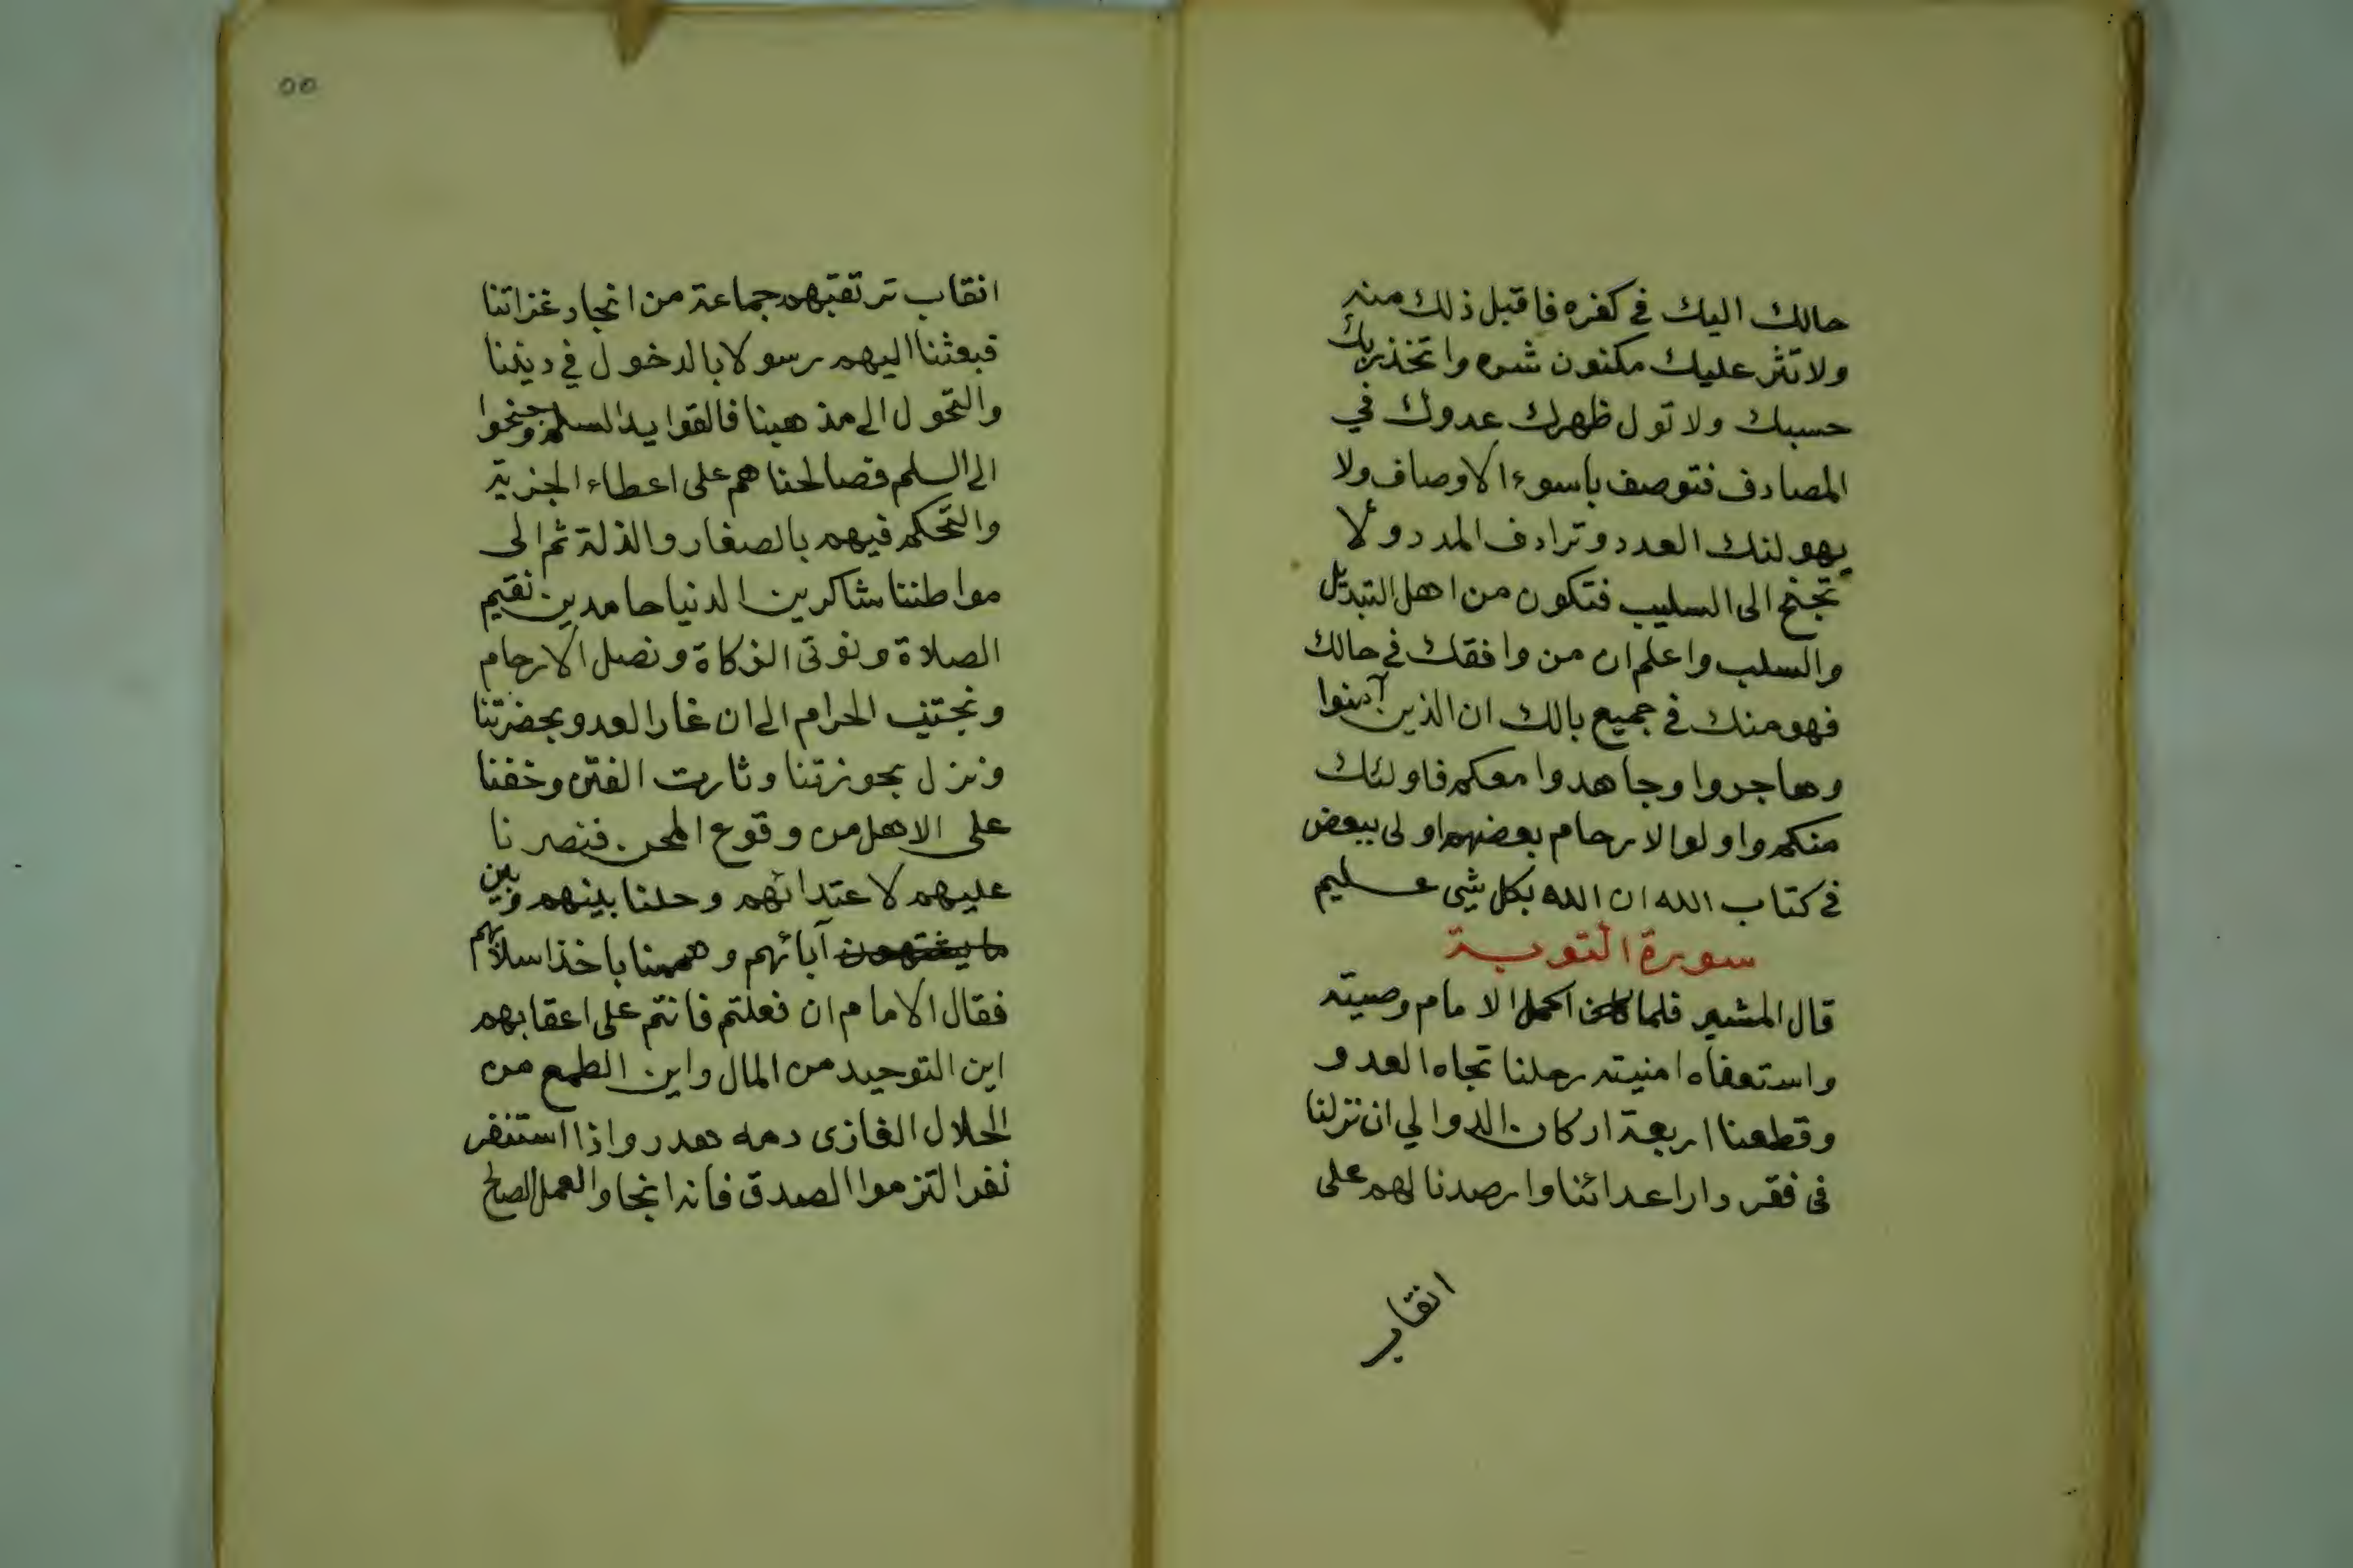 حالك اليك في كفره فاقبل ذلك منه
ولا تثر عليك مكنون شره واتخذ ربك
حسبك ولا تول ظهرك عدوك في
المصادف فتوصف باسوء الاوصاف ولا
يهولنك العدد وترادف المدد ولا
تجنح الى السليب فتكون من اهل التبديل
والسلب واعلم ان من وافقك في حالك
فهو منك في جميع بالك ان الذين آمنوا
وهاجروا وجاهدوا معكم فاولئك
منكم واولوا الارحام بعضهم اولى ببعض
في كتاب الله ان الله بكل شي عليم
سورة التوبة
قال المشير فلما اكمل الامام وصيته
واستعفاه امنيته رحلنا تجاه العدو
وقطعنا اربعة اركان الدوالي ان نزلنا
في فقر دار اعدائنا وارصدنا لهم على
انقاب
٥٥
انقاب ترتقبهم جماعة من انجاد غزاتنا
فبعثنا اليهم رسولا بالدخول في ديننا
والتحول الى مذهبنا فالقوا يد السلم وجنحوا
الى السلم فصالحناهم على اعطاء الجزية
والتحكم فيهم بالصغار والذلة ثم الى
مواطننا شاكرين الدنيا حامدين نقيم
الصلاة ونؤتى الزكاة ونصل الارحام
ونجتنب الحرام الى ان غار العدو بحضرتنا
ونزل بحوزتنا وثارت الفتن وخفنا
على الاهل من وقوع المحن فنصرنا
عليهم لاعتدائهم وحلنا بينهم وبين
ما يشتهون آبائهم وهممنا باخذ اسلابهم
فقال الامام ان فعلتم فانتم على اعقابهم
اين التوحيد من المال واين الطمع من
الحلال الغازى دمه هدر واذا استنفر
نفر التزموا الصدق فانه انجا والعمل الصالح